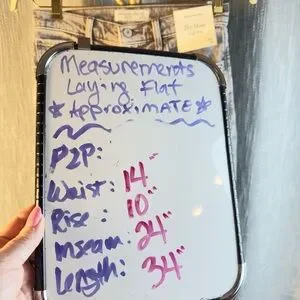 Measurements
Laying Flat
*Approximate*
P2P:
Waist: 14"
Rise: 10"
Inseam: 24"
Length: 34"